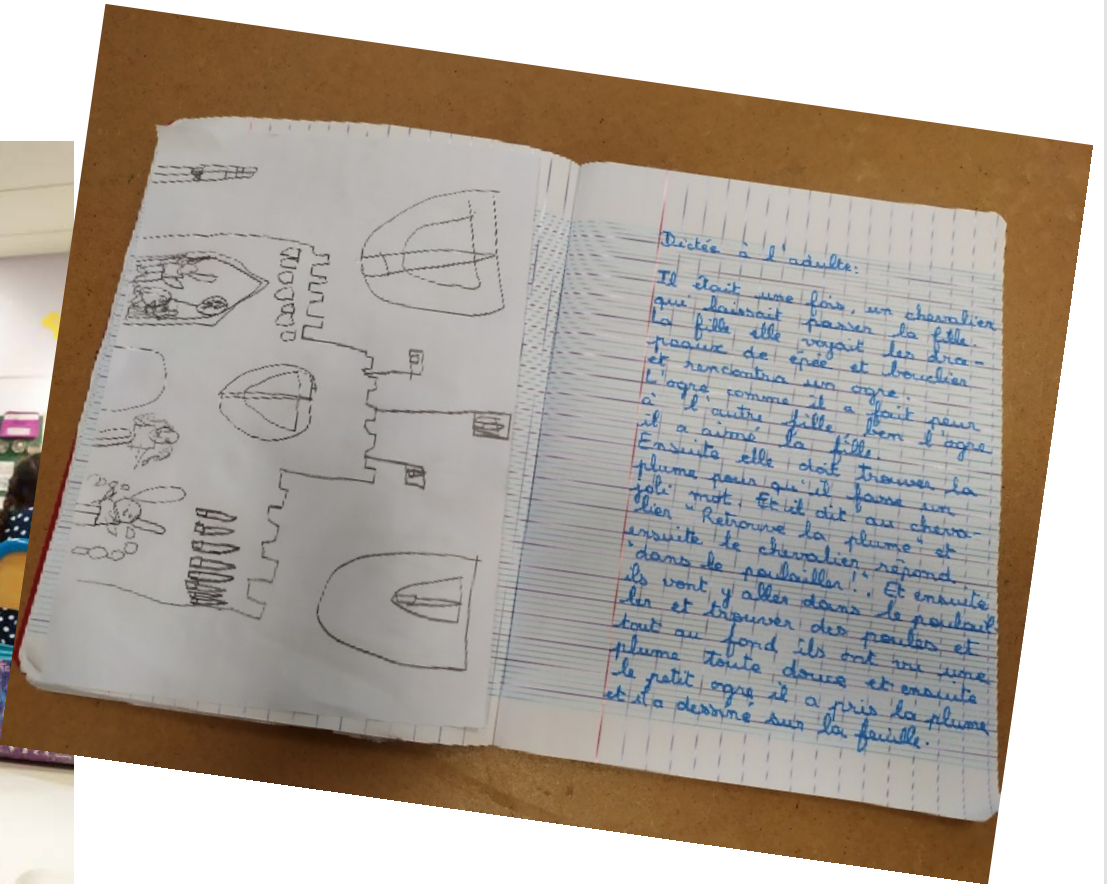 Dictée à l'adulte:
Il était une fois, un chevalier
qui laissait passer la fille.
La fille elle voyait les dra-
peaux de épée et bouclier
et rencontra un ogre.
L'ogre comme il a fait peur
à l'autre fille ben l'ogre
il a aimé la fille.
Ensuite elle doit trouver la
plume pour qu'il fasse un
joli mot. Et il dit au cheva-
lier "Retrouve la plume" et
ensuite le chevalier répond
"dans le poulailler!". Et ensuite
ils vont y aller dans le poulail
ler et trouver des poules et
tout au fond ils ont vu une
plume toute douce et ensuite
le petit ogre il a pris la plume
et il a dessiné sur la feuille.